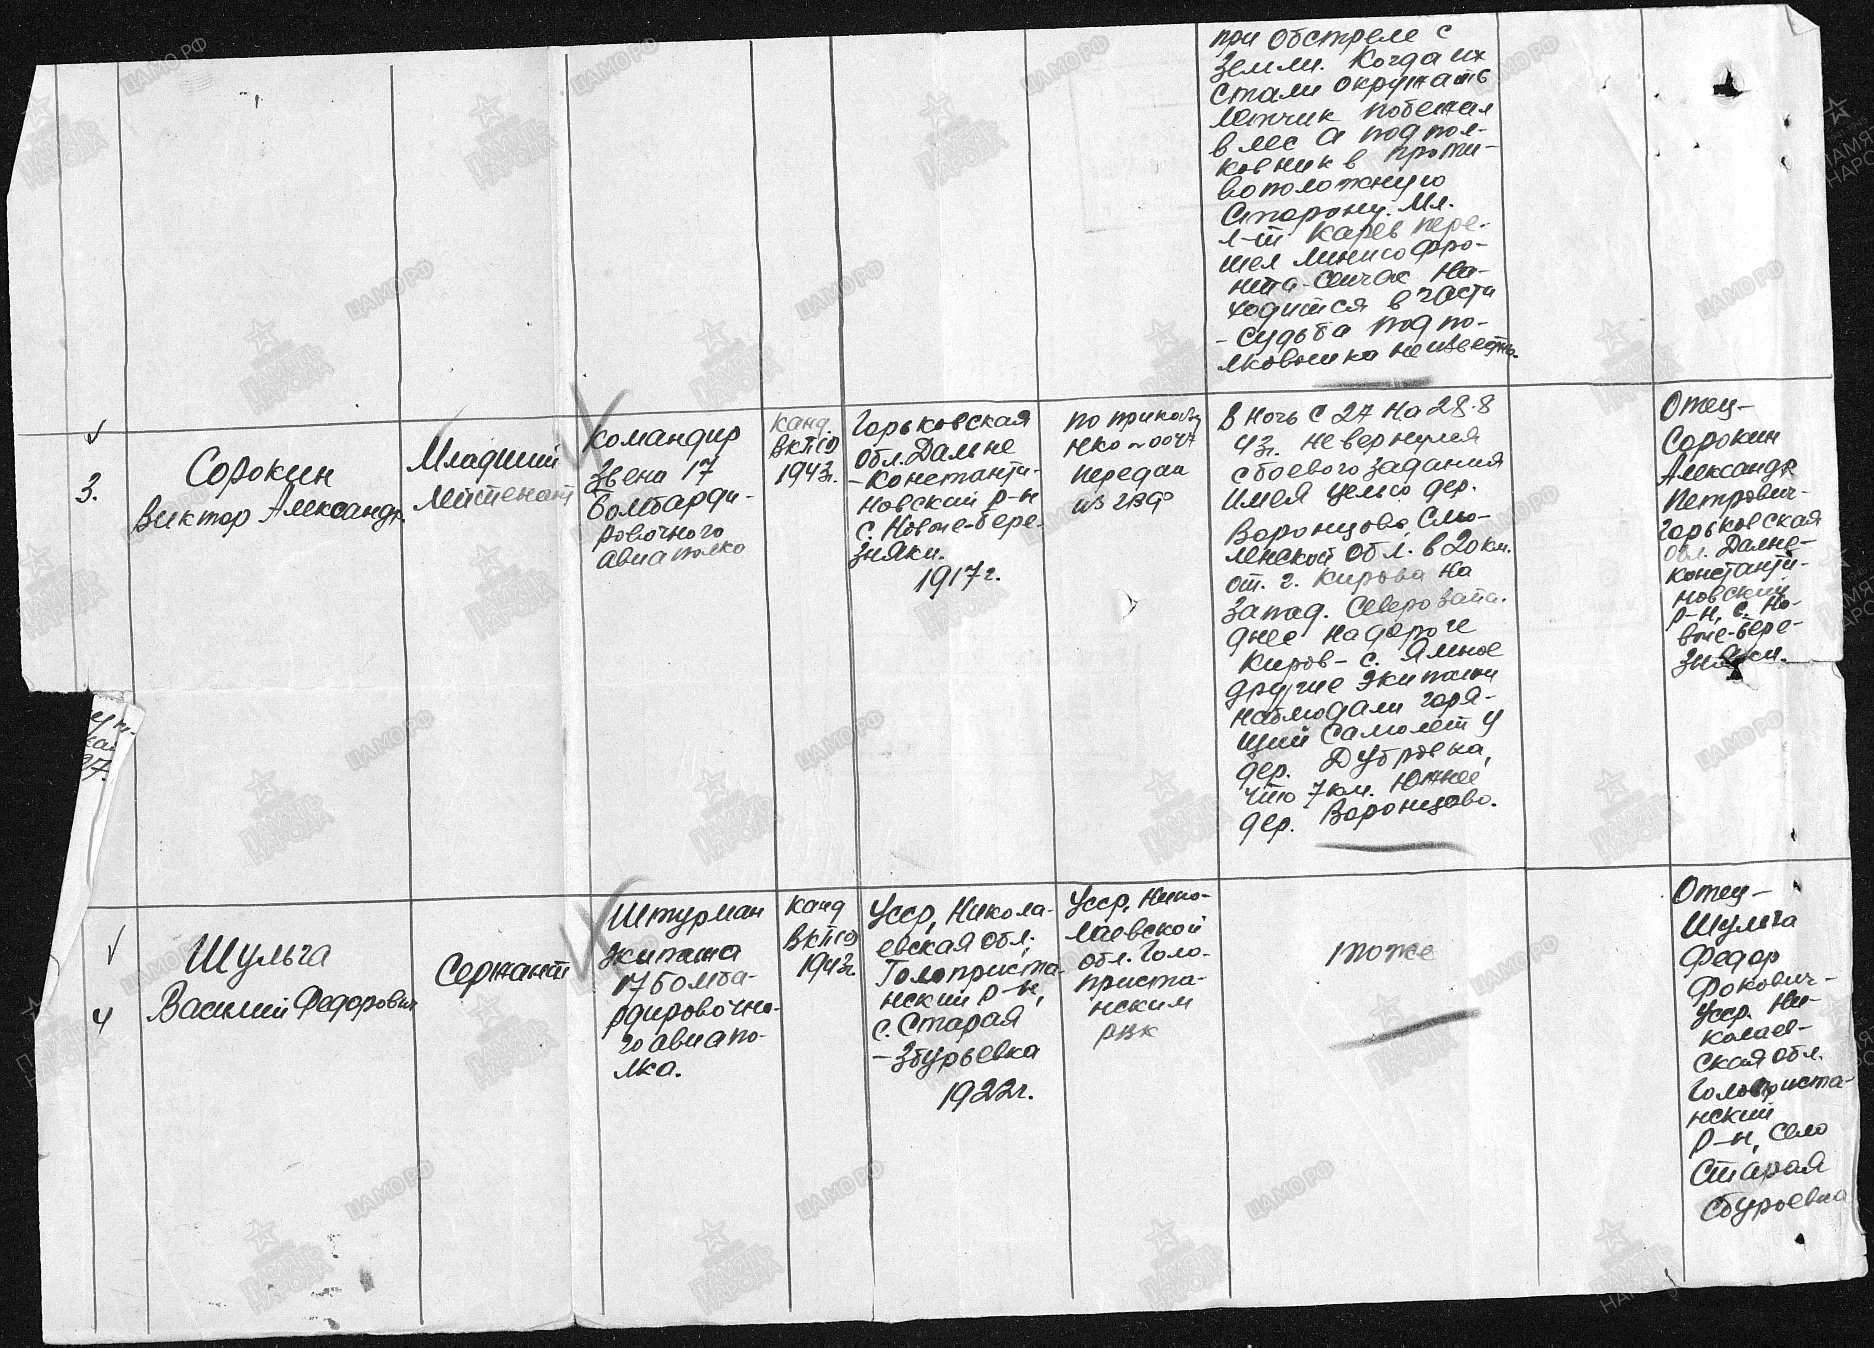 при обстреле с
земли. Когда их
стали окружать
летчик побежал
в лес а подпол-
ковник в проти-
воположную
сторону. Мл.
л-т Карев пере-
шел линию фро-
нта. Сейчас на-
ходится в части
- судьба подпо-
лковника неизвестна.
3.
Сорокин
Виктор Александр.
Младший
лейтенант
Командир
звена 17
бомбарди-
ровочного
авиаполка
канд.
ВКП(б)
1943г.
Горьковская
обл. Дальне
-Константи-
новский р-н
с. Новые-бере-
зняки.
1917г.
по приказу
НКО
передан
из ГВФ
В ночь с 27 на 28.8
43г. не вернулся
с боевого задания
имея целью дер.
Воронцово, Смо-
ленской обл. в 20 км.
от. г. Кирова на
запад. Северо запа-
днее на дороге
Киров- с. Ямное
другие экипажи
наблюдали горя-
щий самолет у
дер. Дубровка,
что 7 км. южнее
дер. Воронцово.
Отец-
Сорокин
Александр
Петрович-
Горьковская
обл. Дальне-
константи-
новский
р-н, с. Но-
вые-бере-
зняки.
4
Шульга
Василий Федорович
Сержант
Штурман
экипажа
17 бомба-
рдировочно-
го авиапо-
лка.
канд
ВКП(б)
1943г.
УССР, Никола-
евская обл.
Голопристa-
нский р-н,
с. Старая
-Збурьевка
1922г.
УССР, Нико-
лаевской
обл. Голо-
приста-
нским
РВК
тоже
Отец-
Шульга
Федор
Фокович-
УССР. Ни-
колаев-
ская обл.
Голоприста-
нский
р-н, село
Старая
Сбурьевка
ЦАМО.РФ
ПАМЯТЬ
НАРОДА